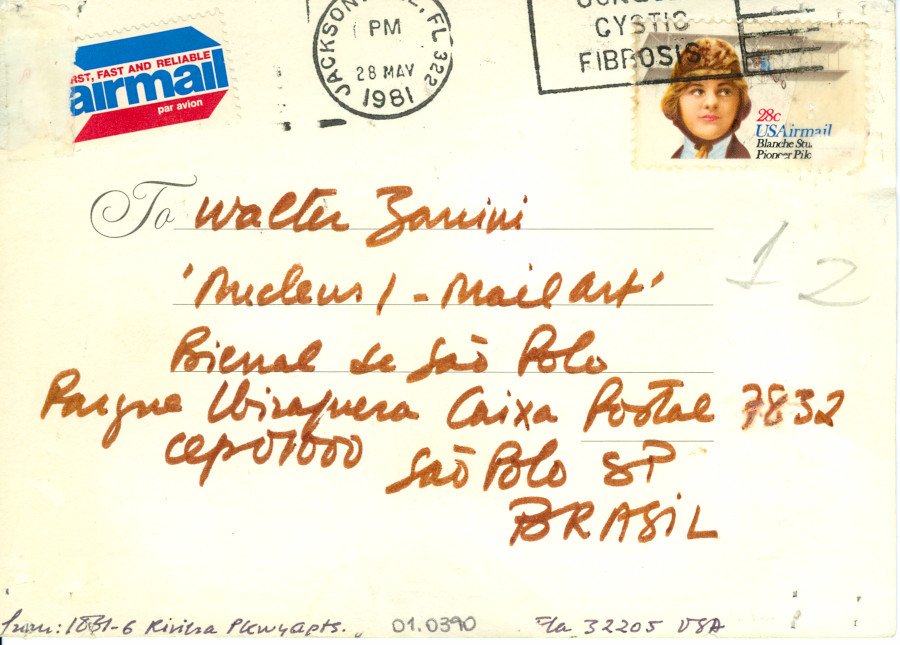 FAST AND RELIABLE
airmail
par avion
JACKSON
FL 322
PM
28 MAY
1981
CYSTIC
FIBROSIS
28c
USAirmail
Blanche Stu
Pioneer Pilo
To Walter Zanini
'Nucleus I - Mail art'
Bienal de São Polo
Parque Ibirapuera Caixa Postal 7832
cep 01000 São Polo SP
BRASIL
12
from: 1851-6 Riviera Pkwyapts. 01.0390 Fla 32205 USA